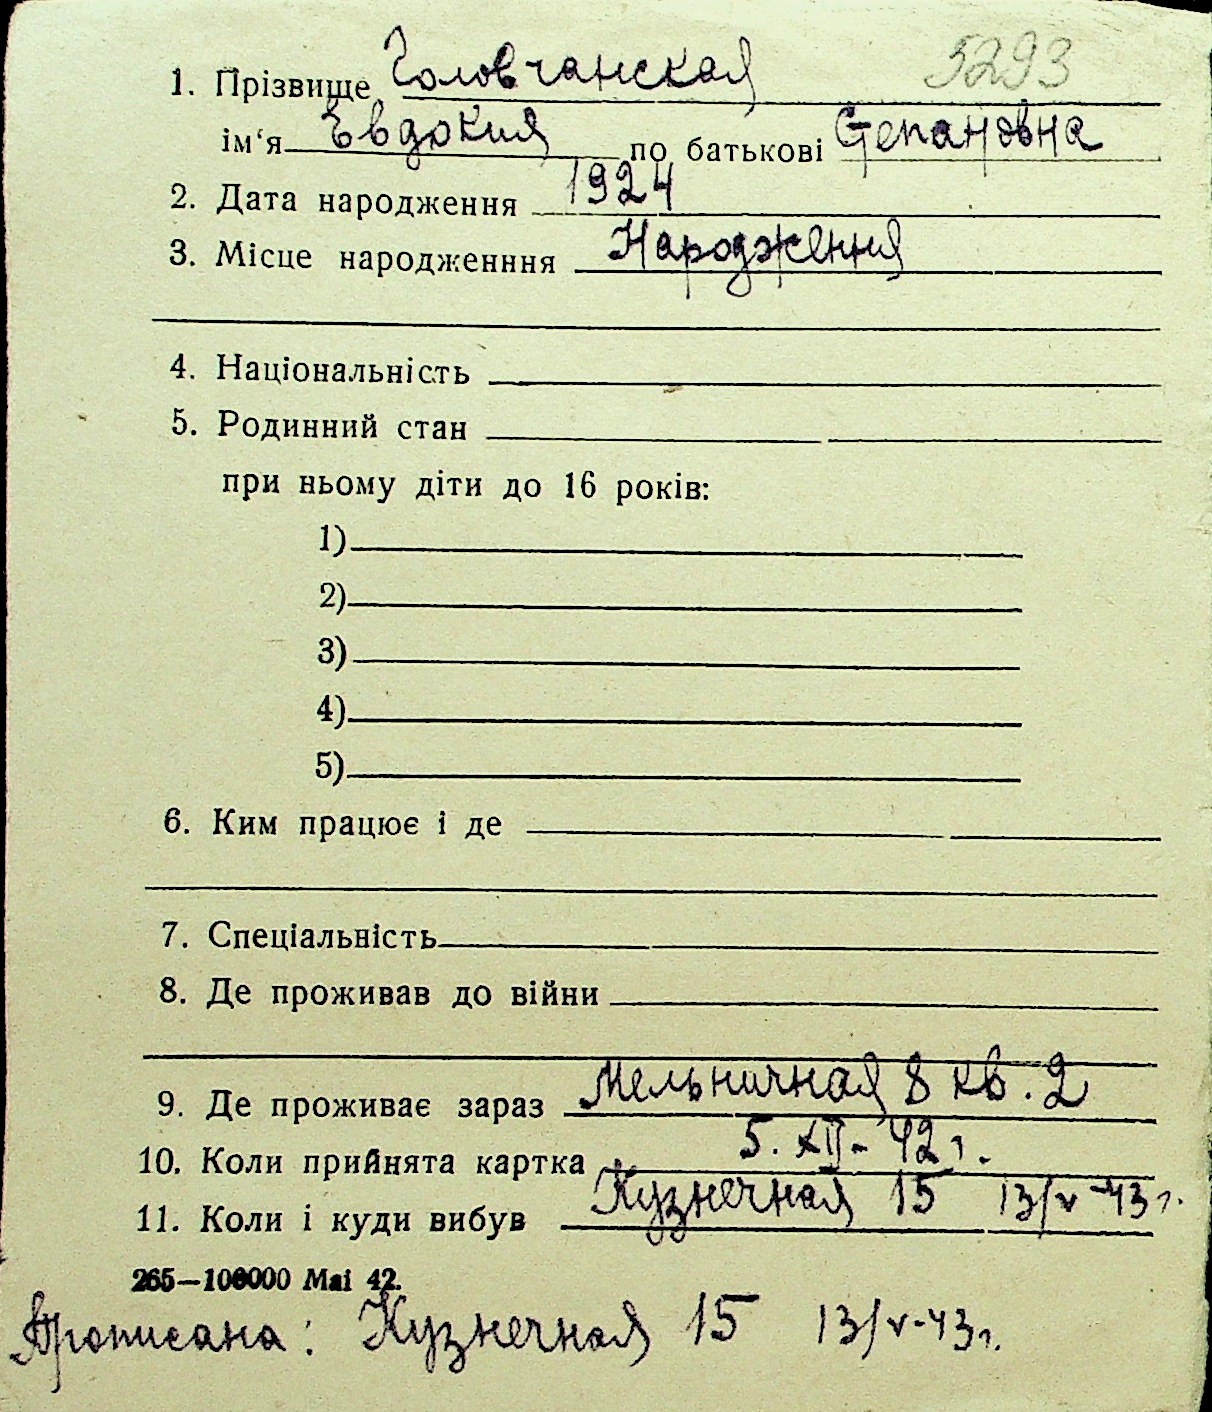 5293
1. Прізвище Головчанская
ім'я Евдокия по батькові Степановна
2. Дата народження 1924
3. Місце народженння Народження
4. Національність
5. Родинний стан
при ньому діти до 16 років:
1)
2)
3)
4)
5)
6. Ким працює і де
7. Спеціальність
8. Де проживав до війни
9. Де проживає зараз Мельничная 8 кв. 2
10. Коли прийнята картка 5. XII - 42 г.
11. Коли і куди вибув Кузнечная 15 13/V-43 г.
265—100000 Mai 42.
Прописана: Кузнечная 15 13/V-43 г.